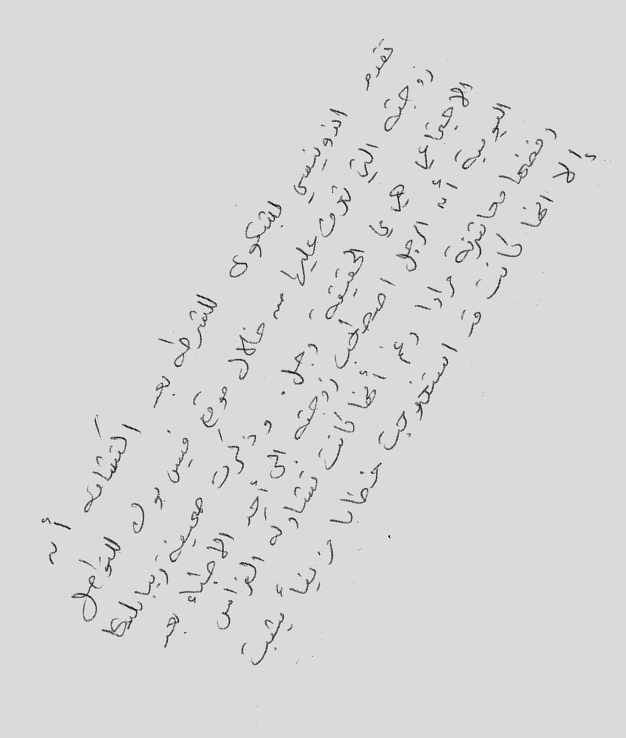 تقدم اندونيسي بشكوى للشرطة بعد اكتشافه أن
زوجته التي تعرف عليها من خلال موقع فيس بوك للتواصل
الاجتماعي هي في الحقيقة رجل. وذكرت صحيفة ريبابليكا
اليومية أن الرجل اصطحب زوجته الى أحد الأطباء بعد
رفضها معاشرته مرارا رغم أنها كانت تشاركه الفراش
ألا انها كانت قد استخرجت خطابا مزيفا يثبت